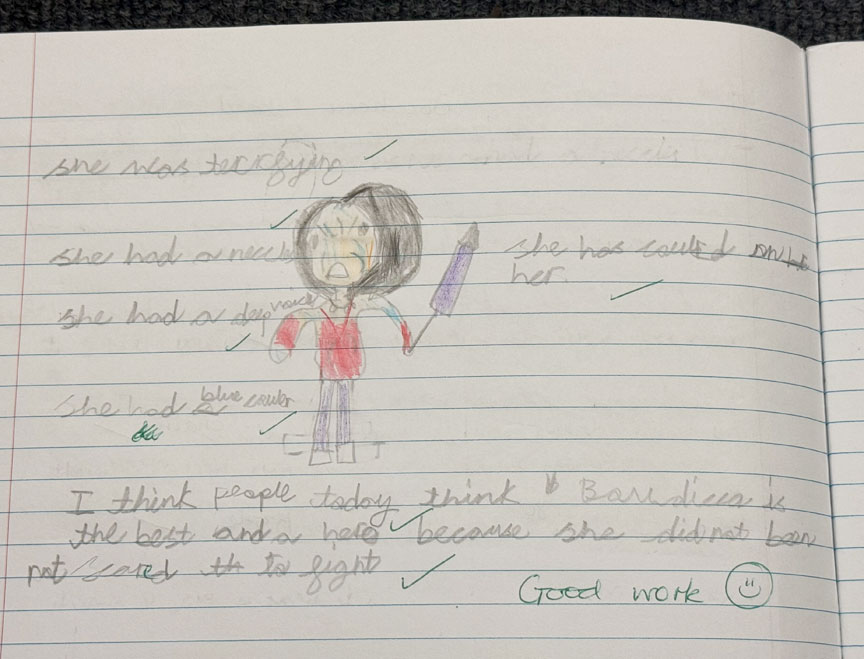 she was terrifying
she had a neck
she has could
her.
she had a deep voice
She had a blue
I think people today think Boudicca is
the best and a hero because she did not been
not scared to fight
Good work